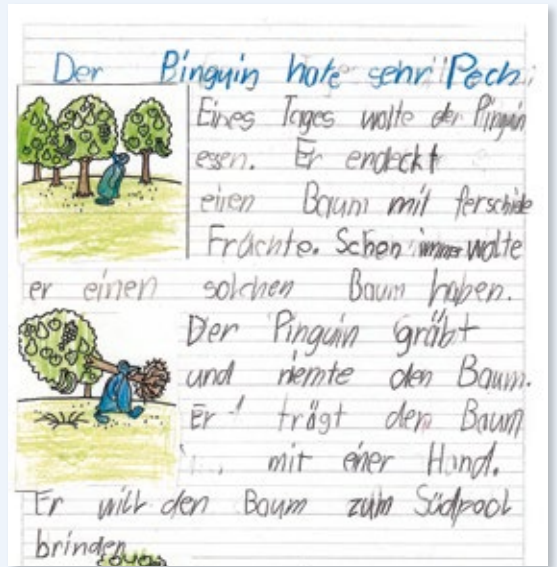 Der Pinguin hate sehr Pech
Eines Tages wolte der Pinguin
essen. Er endeckt
einen Baum mit ferschide
Früchte. Schon immer wolte
er einen solchen Baum haben.
Der Pinguin gräbt
und niemte den Baum.
Er trägt den Baum
mit einer Hand.
Er will den Baum zum Südpool
brinden